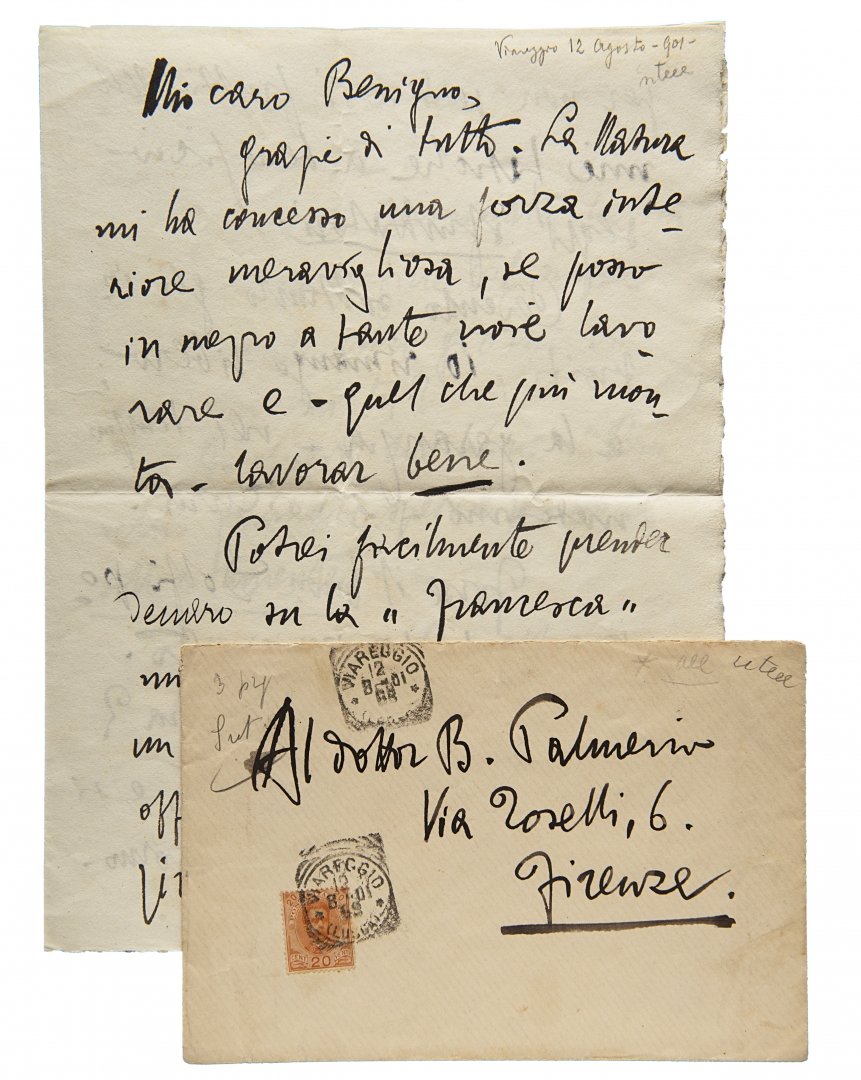 Viareggio 12 agosto - 901 -
Mio caro Benigno,
grazie di tutto. La Natura
mi ha concesso una forza inte-
riore meravigliosa, se posso
in mezzo a tante noie lavo-
rare e - quel che più mon-
ta - lavorar bene.
Potrei facilmente prender
denaro su la "Francesca"
mi
un
off
VIAREGGIO
12
8-01
(LUCCA)
3 pag
Al dottor B. Palmerio
Via Roselli, 6.
Firenze.
VIAREGGIO
12
8-01
(LUCCA)
CENT 20 CENT